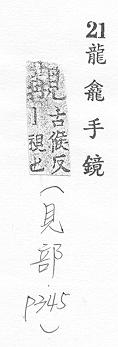 21 龍龕手鏡
覯
古候反
丨視也
(見部.p345)